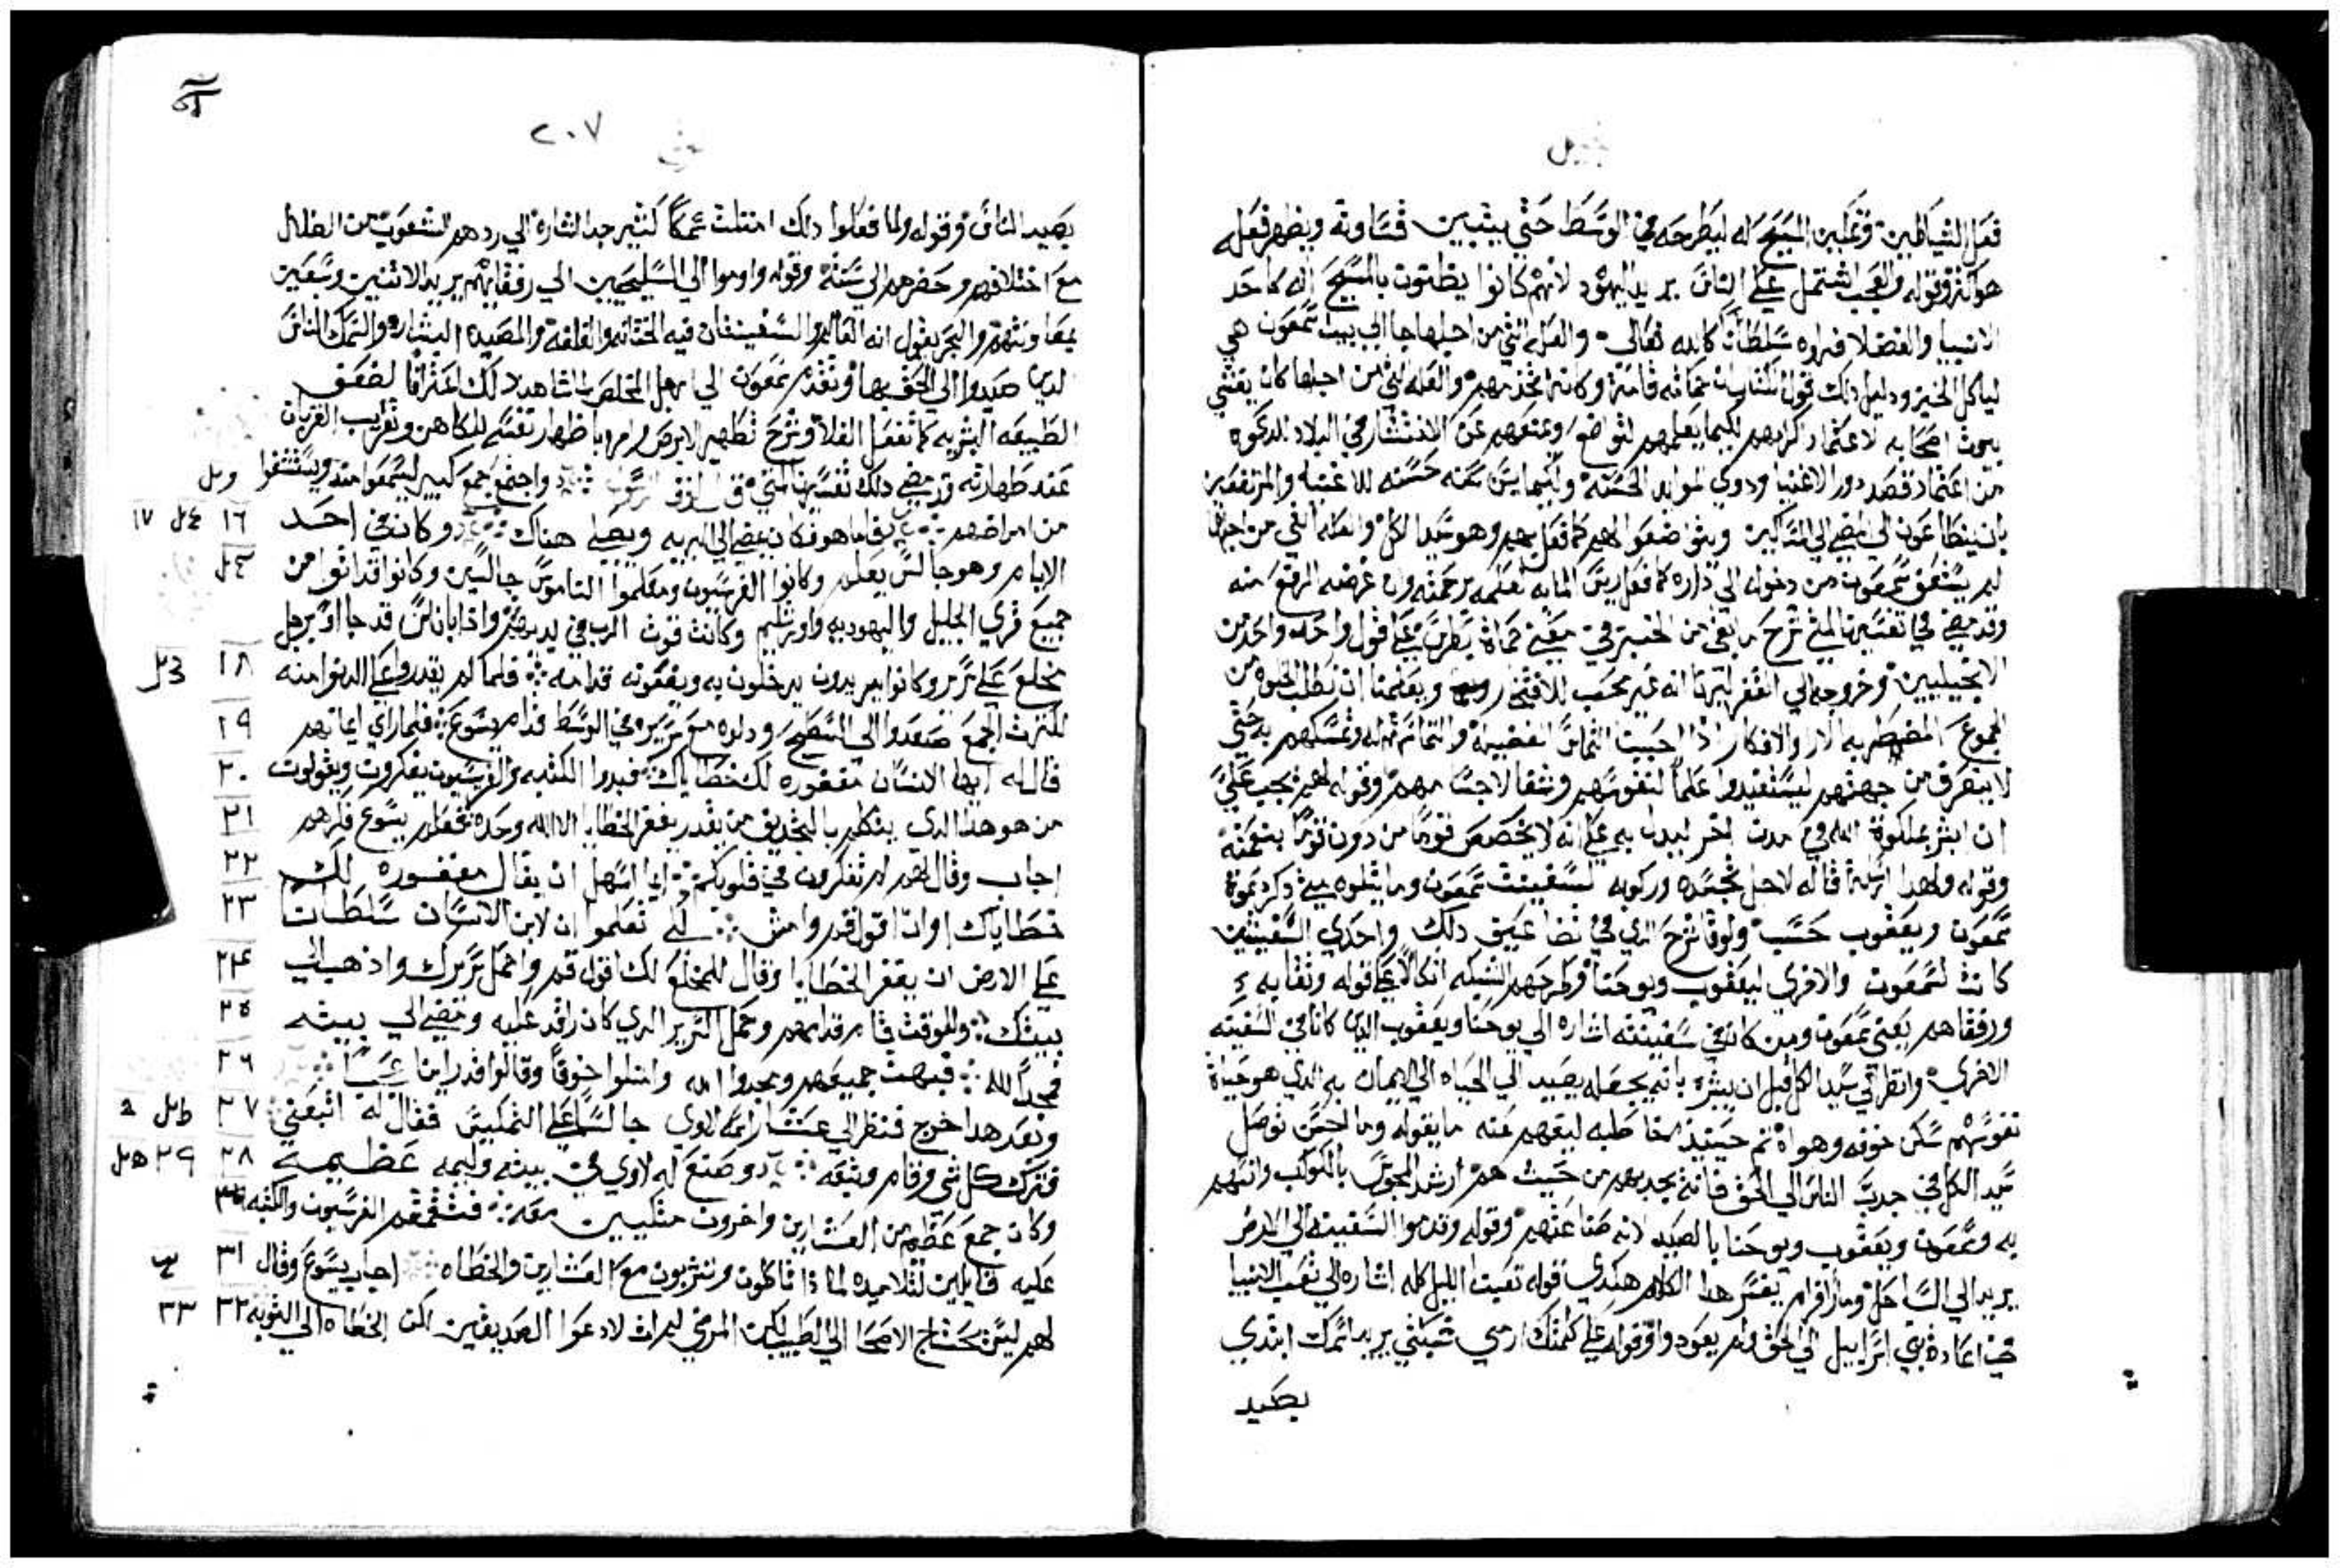 فعل الشياطين وتمكين المسيح له ليطرحه في الوسط حتي يتبين قساوته ويظهر فعله
هو اكثر وقوله والعجب اشتمل علي الناس يريد اليهود لانهم كانوا يظنون بالمسيح انه كاحد
الانبيا والفضلا فراوه سلطان كالله تعالي والعله التي من اجلها جا الي بيت سمعون هي
لياكل الخبز ودليل ذلك قول الكتاب ان حماته قامت وكانت تخدمهم والعله التي من اجلها كان يغشي
بيوت اصحابه لاعتماد اكرامهم لكيما يعلمهم التواضع ويمنعهم عن الانتشار في البلاد
من اعتماد قصد دور الاغنيا ودوي الموايد الحسنه ولكيما يسن سنه حسنه للاغنيا والمرتفعين
بان يتطاعون الي المضي الي المساكين ويتواضعوا لهم كما فعل بهم وهو سيد الكل والعله التي من اجلها
لم يستعف سمعون من دخوله الي داره كما فعل ريس المايه لعلمه برحمته وان غرضه المرتفع منه
وقد مضي في تفسيرنا لمتي شرح ما بقي من الخبر في معني حماة بطرس علي قول واحد واحد من
الانجيليين وخروجه الي القفر ليرينا انه غير محب للافتخار ويعلمنا ان نطلب الخلوه من
الجموع المضطربه الارا والافكار اذا احببنا التماس الفضيله والتماسهم له وتمسكهم به حتي
لا ينصرف من جهتهم ليستفيدوا علماً لنفوسهم وشفا لاجسامهم وقوله لهم يجب علي
ان ابشر بملكوت الله وفي مدن اخر ليدل به علي انه لا يخصص قوماً من دون قوماً بنعمته
وقوله ولهذا ارسلت قاله لاجل تجسده وركوبه لسفينت سمعون وما يتلوه متي ذكر دعوة
سمعون ويعقوب حسب ولوقا شرح الذي في تضاعيف ذلك واحدي السفينتين
كانت لسمعون والاخري ليعقوب ويوحنا وطرحهم الشبكه اتكالاً علي قوله وثقا به
ورفقاهم يعني سمعون ومن كان في سفينته اشاره الي يوحنا ويعقوب الذين كانا في السفينه
الاخري وانظر الي سيد الكل قبل ان يبشره بانه يجعله يصيد الي الحياه الي الايمان به الذي هو حياة
نفوسهم سكن خوفه وهواه ثم حينيذ خاطبه ليفهم عنه ما يقوله وما احسن توصل
سيد الكل في جدب الناس الي الحق فانه يجدبهم من حيث هم ارشد المجوس بالكوكب وانسهم
به وسمعون ويعقوب ويوحنا بالصيد لانه صناعتهم وقوله وقدموا السفينه الي الارض
يريد الي الساحل ومار افرام يفسر هذا الكلام هكدي قوله تعبت الليل كله اشاره الي تعب الانبيا
في اعادة بني اسراييل الي الحق ولم يعودوا وقوله علي كلمتك ارمي شبكتي يريد بامرك ابتدي
بصيد
٢٠٧
بصيد الناس وقوله ولما فعلوا ذلك امتلت سمكاً كثير جدا اشاره الي ردهم الشعوب من الضلال
مع اختلافهم وحضرهم الي سفنه وقوله واوموا الي السليحيين الي رفقايهم يريد الاثنين وسبعين
بمعاونتهم والبحر يقول انه العالم والسفينتان فيه الختانه والقلفه والمصيده البشاره والسمك الناس
الذين صيدوا الي الحق بها وتقدم سمعون الي رجل المخلص لما شاهد ذلك اعترافا لضعف
الطبيعه البشريه كما تفعل الفلا وشرح تطهير الابرص وامره باظهار نفسه للكاهن وتقريب القربان
عند طهارته قد مضي ذلك تفسيرنا لمتي واجتمع جمع كبير ليسمعوا منه ويستشفوا
من امراضهم فاما هو فكان يمضي الي البريه ويصلي هناك وكان في احد ١٦ ١٧
الايام وهو جالس يعلم وكانوا الفرسيون ومعلموا الناموس جالسين وكانوا قد اتوا من
جميع قري الجليل واليهوديه واورشليم وكانت قوت الرب في يديه واذا باناس قد جاوا برجل
مخلع علي سرير وكانوا يريدون يدخلون به ويضعونه قدامه فلما لم يقدروا علي الدنوا منه ١٨
لكثرت الجمع صعدوا الي السطح ودلوه مع سريره في الوسط قدام يسوع فلما راي ايمانهم ١٩
قال له ايها الانسان مغفوره لك خطاياك فبدوا الكتبه والفرسيون يفكرون ويقولون ٢٠
من هو هذا الذي يتكلم بالتجديف من يقدر يغفر الخطايا الا الله وحده فعلم يسوع فكرهم ٢١
اجاب وقال لهم لم تفكرون في قلوبكم ايما اسهل ان يقال مغفوره لك ٢٢
خطاياك او ان اقول قم وامش لكي تعلموا ان لابن الانسان سلطانا ٢٣
علي الارض ان يغفر الخطايا وقال للمخلع لك اقول قم واحمل سريرك واذهب الي ٢٤
بيتك وللوقت قام قدامهم وحمل السرير الذي كان راقد عليه ومضي الي بيته ٢٥
مجداً لله فبهت جميعهم ومجدوا الله وامتلوا خوفاً وقالوا قد راينا عجباً ٢٦
وبعد هذا خرج فنظر الي عشار اسمه لاوي جالساً علي التمكيس فقال له اتبعني ٢٧
فترك كل شي وقام وتبعه وصنع له لاوي في بيته وليمه عظيمة ٢٨ ٢٩
وكان جمع عظيم من العشارين واخرون متكيين معه فتقمقم الفرسيون والكتبه ٣٠
عليه قايلين لتلاميده لما ذا تاكلون وتشربون مع العشارين والخطاه اجاب يسوع وقال ٣١
لهم ليس يحتاج الاصحا الي الطبيب لكن المرضي لم ات لادعوا الصديقين لكن الخطاه الي التوبة ٣٢ ٣٣